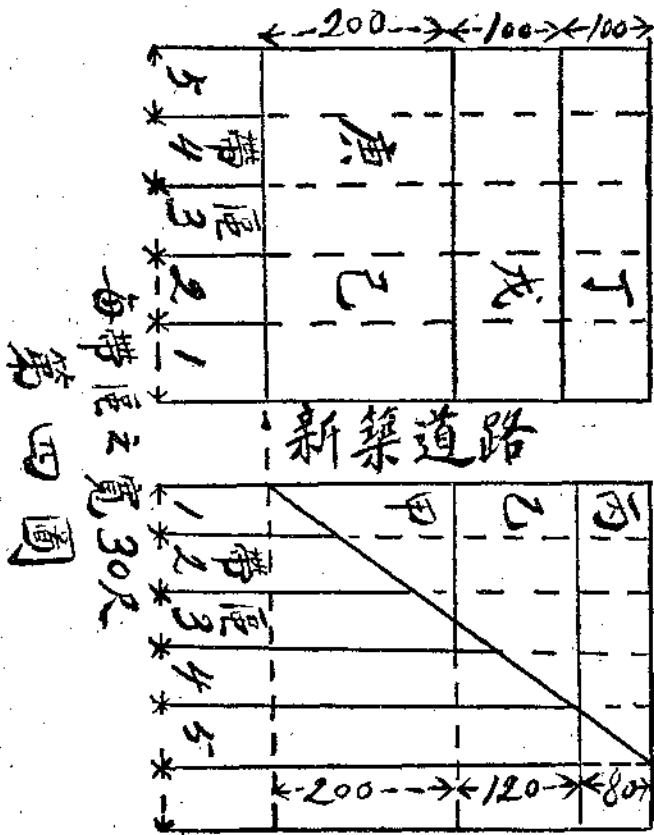 200 100 100
5
帶4
區3
2
1
庚
己
戊
丁
新築道路
甲
乙
丙
1
帶2
區3
4
5
200 120 80
每帶區之寬30尺
第四圖